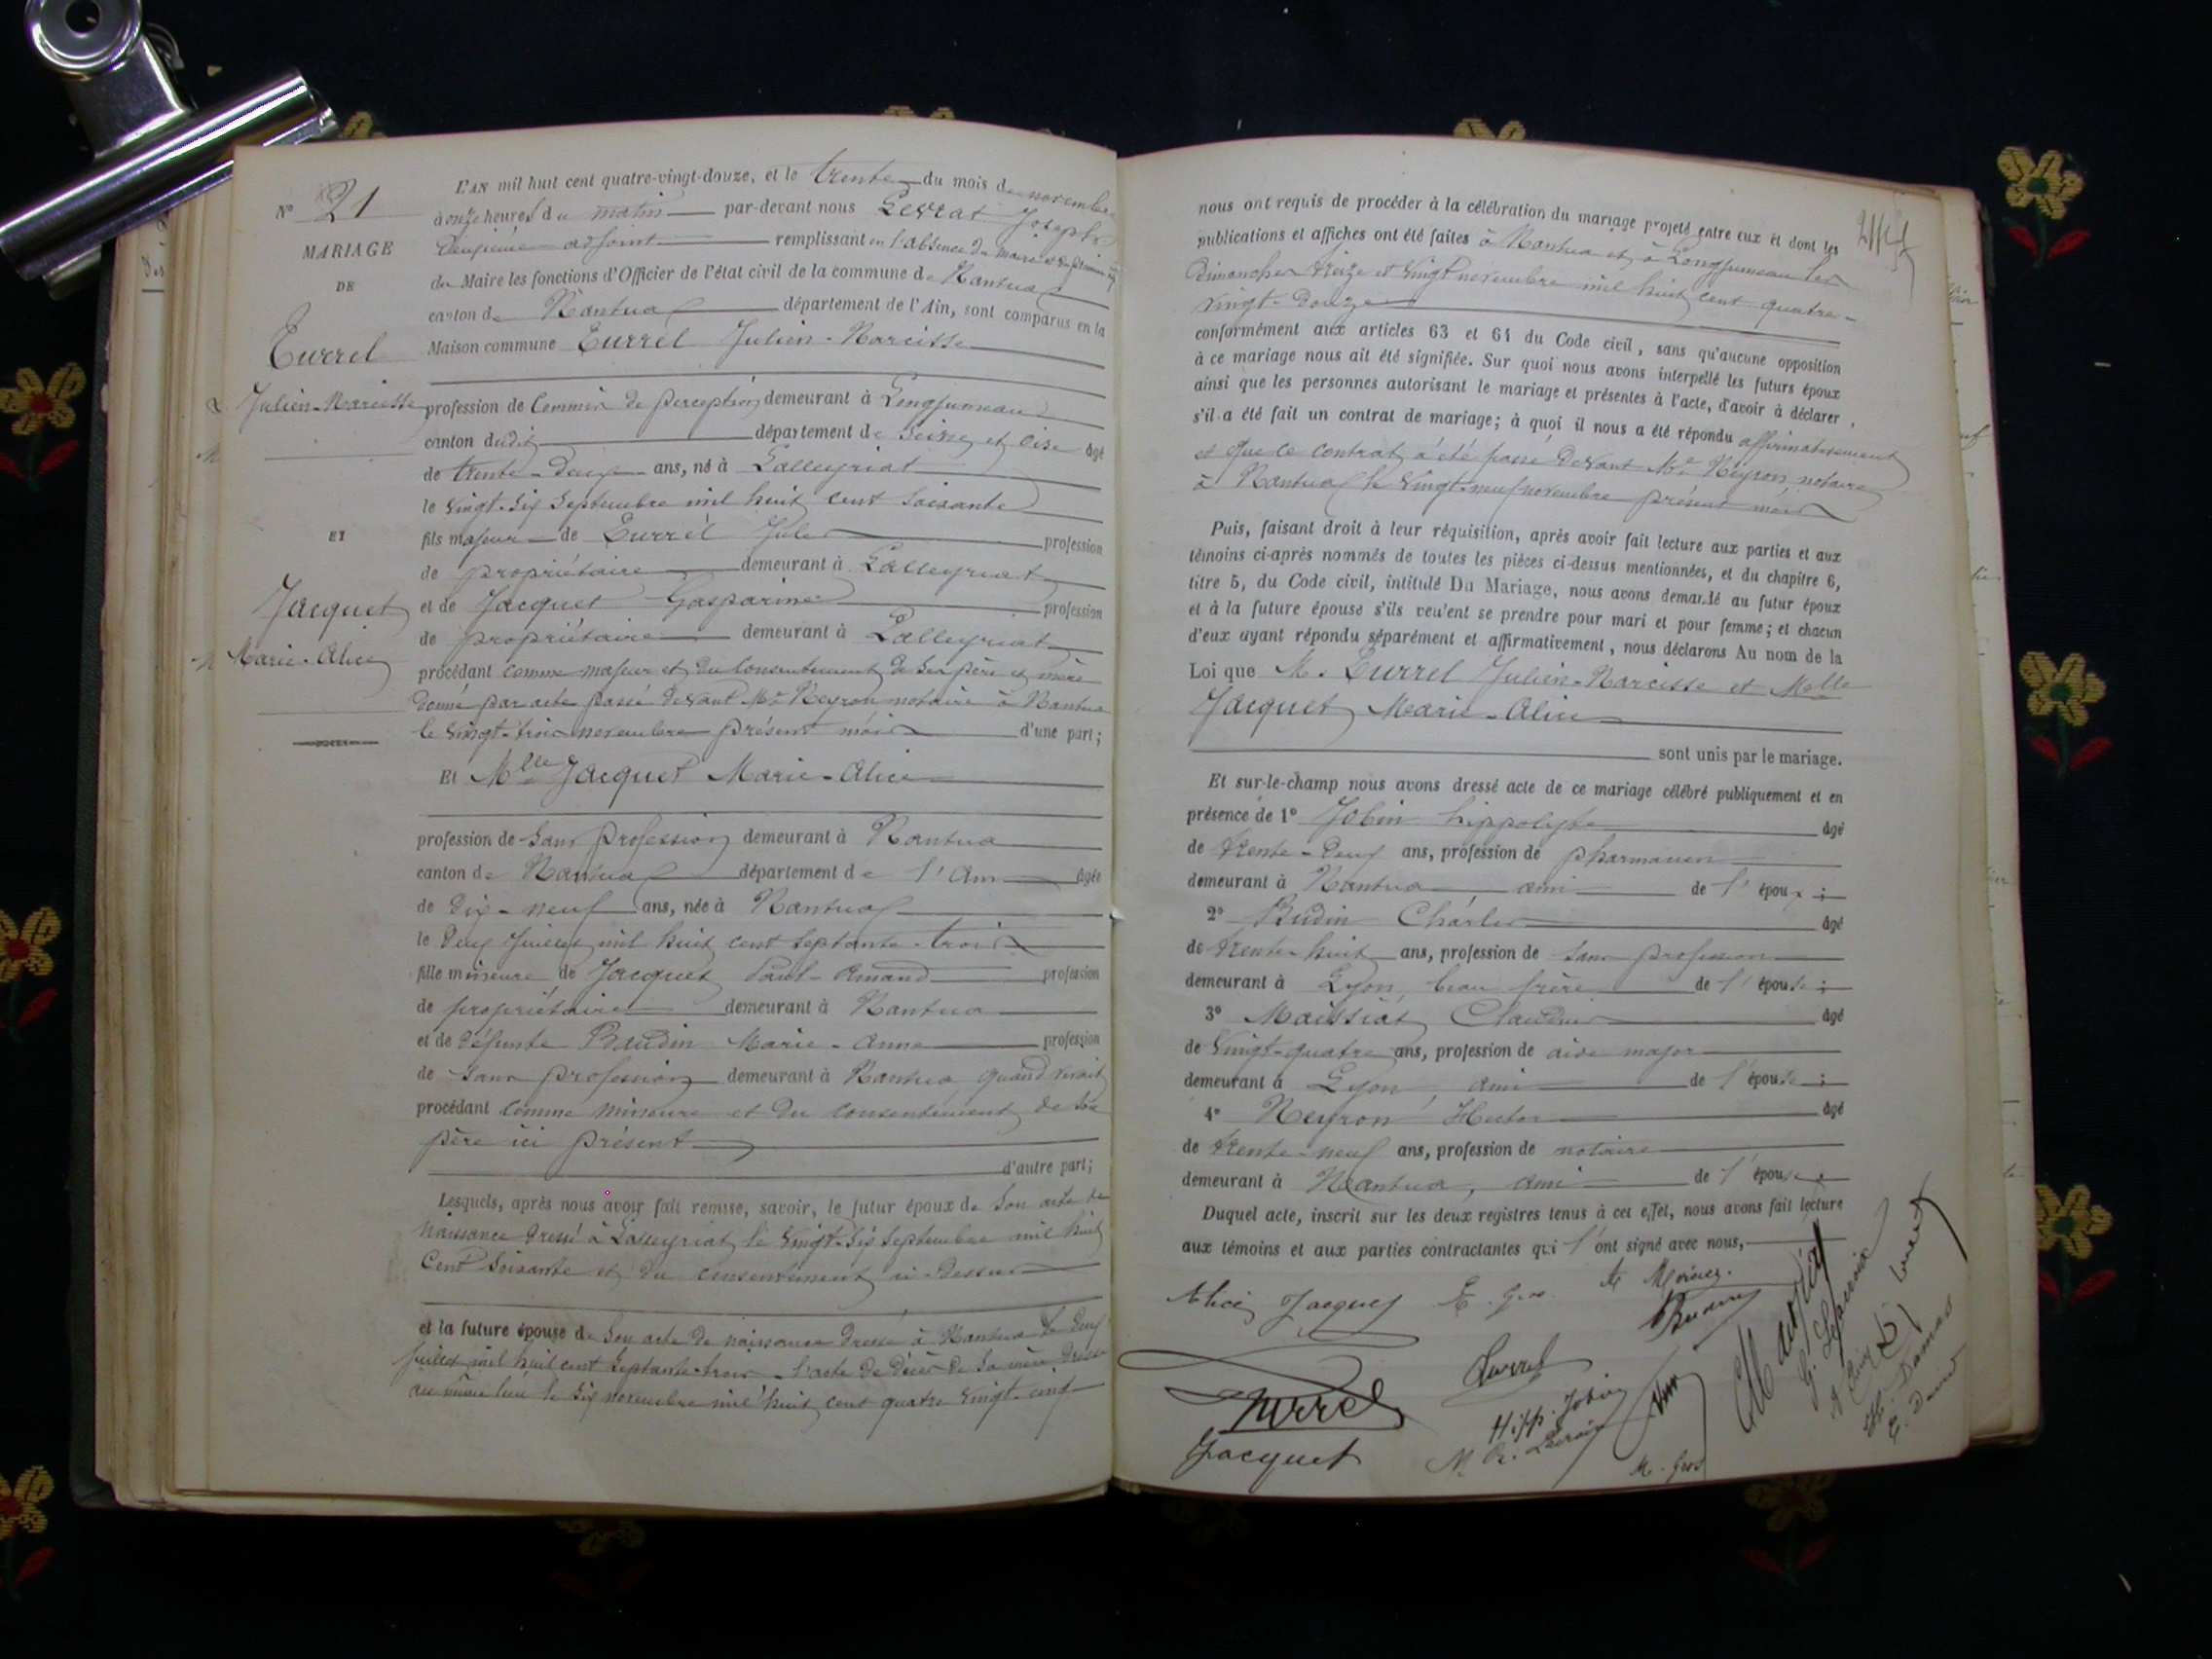 N° 21
MARIAGE
DE
Turrel
Julien-Narcisse
ET
Jacquet
Marie-Alice
L'AN mil huit cent quatre-vingt-douze, et le trente du mois de novembre
à onze heures du matin par-devant nous Levrat Joseph
deuxième adjoint remplissant en l'absence du maire et du premier
du Maire les fonctions d'Officier de l'état civil de la commune de Nantua
canton de Nantua département de l'Ain, sont comparus en la
Maison commune Turrel Julien-Narcisse
profession de Commis de perception demeurant à Longjumeau
canton dudit département de Seine et Oise âgé
de trente-deux ans, né à Lalleyriat
le vingt-six Septembre mil huit cent soixante
fils majeur de Turrel Jules profession
de propriétaire demeurant à Lalleyriat
et de Jacquet Gasparine profession
de propriétaire demeurant à Lalleyriat
procédant comme majeur et du consentement de ses père et mère
donné par acte passé devant Me Neyron notaire à Nantua
le vingt-trois novembre présent mois d'une part;
Et Mlle Jacquet Marie-Alice
profession de Sans profession demeurant à Nantua
canton de Nantua département de l'Ain âgée
de dix-neuf ans, née à Nantua
le deux Juillet mil huit cent septante-trois
fille mineure de Jacquet Paul-Amand profession
de propriétaire demeurant à Nantua
et de défunte Baudin Marie-Anne profession
de Sans profession demeurant à Nantua quand vivait
procédant comme mineure et du consentement de son
père ici présent
d'autre part;
Lesquels, après nous avoir fait remise, savoir, le futur époux de Son acte de
naissance dressé à Lalleyriat le vingt-six Septembre mil huit
cent soixante et du consentement ci-dessus
et la future épouse de Son acte de naissance dressé à Nantua le deux
juillet mil huit cent septante-trois l'acte de décès de sa mère dressé
au même lieu le six novembre mil huit cent quatre vingt-cinq
nous ont requis de procéder à la célébration du mariage projeté entre eux et dont les
publications et affiches ont été faites à Nantua et à Longjumeau les
Dimanches treize et vingt novembre mil huit cent quatre-
vingt-douze
conformément aux articles 63 et 64 du Code civil, sans qu'aucune opposition
à ce mariage nous ait été signifiée. Sur quoi nous avons interpellé les futurs époux
ainsi que les personnes autorisant le mariage et présentes à l'acte, d'avoir à déclarer,
s'il a été fait un contrat de mariage; à quoi il nous a été répondu affirmativement
et que ce contrat a été passé devant Me Neyron notaire
à Nantua le vingt-neuf novembre présent mois
Puis, faisant droit à leur réquisition, après avoir fait lecture aux parties et aux
témoins ci-après nommés de toutes les pièces ci-dessus mentionnées, et du chapitre 6,
titre 5, du Code civil, intitulé Du Mariage, nous avons demandé au futur époux
et à la future épouse s'ils veulent se prendre pour mari et pour femme; et chacun
d'eux ayant répondu séparément et affirmativement, nous déclarons Au nom de la
Loi que M. Turrel Julien-Narcisse et Melle
Jacquet Marie-Alice
sont unis par le mariage.
Et sur-le-champ nous avons dressé acte de ce mariage célébré publiquement et en
présence de 1° Jobin hippolyte âgé
de trente-deux ans, profession de pharmacien
demeurant à Nantua ami de l'époux;
2° Budin Charles âgé
de trente-huit ans, profession de sans profession
demeurant à Lyon, beau frère de l'épouse;
3° Maissiat Claudius âgé
de vingt-quatre ans, profession de aide major
demeurant à Lyon, ami de l'épouse;
4° Neyron Hector âgé
de trente-neuf ans, profession de notaire
demeurant à Nantua, ami de l'épouse
Duquel acte, inscrit sur les deux registres tenus à cet effet, nous avons fait lecture
aux témoins et aux parties contractantes qui l'ont signé avec nous,
Alice Jacquet E. Gros
Turrel
Turrel
Hipp. Jobin
Jacquet
M. Gros